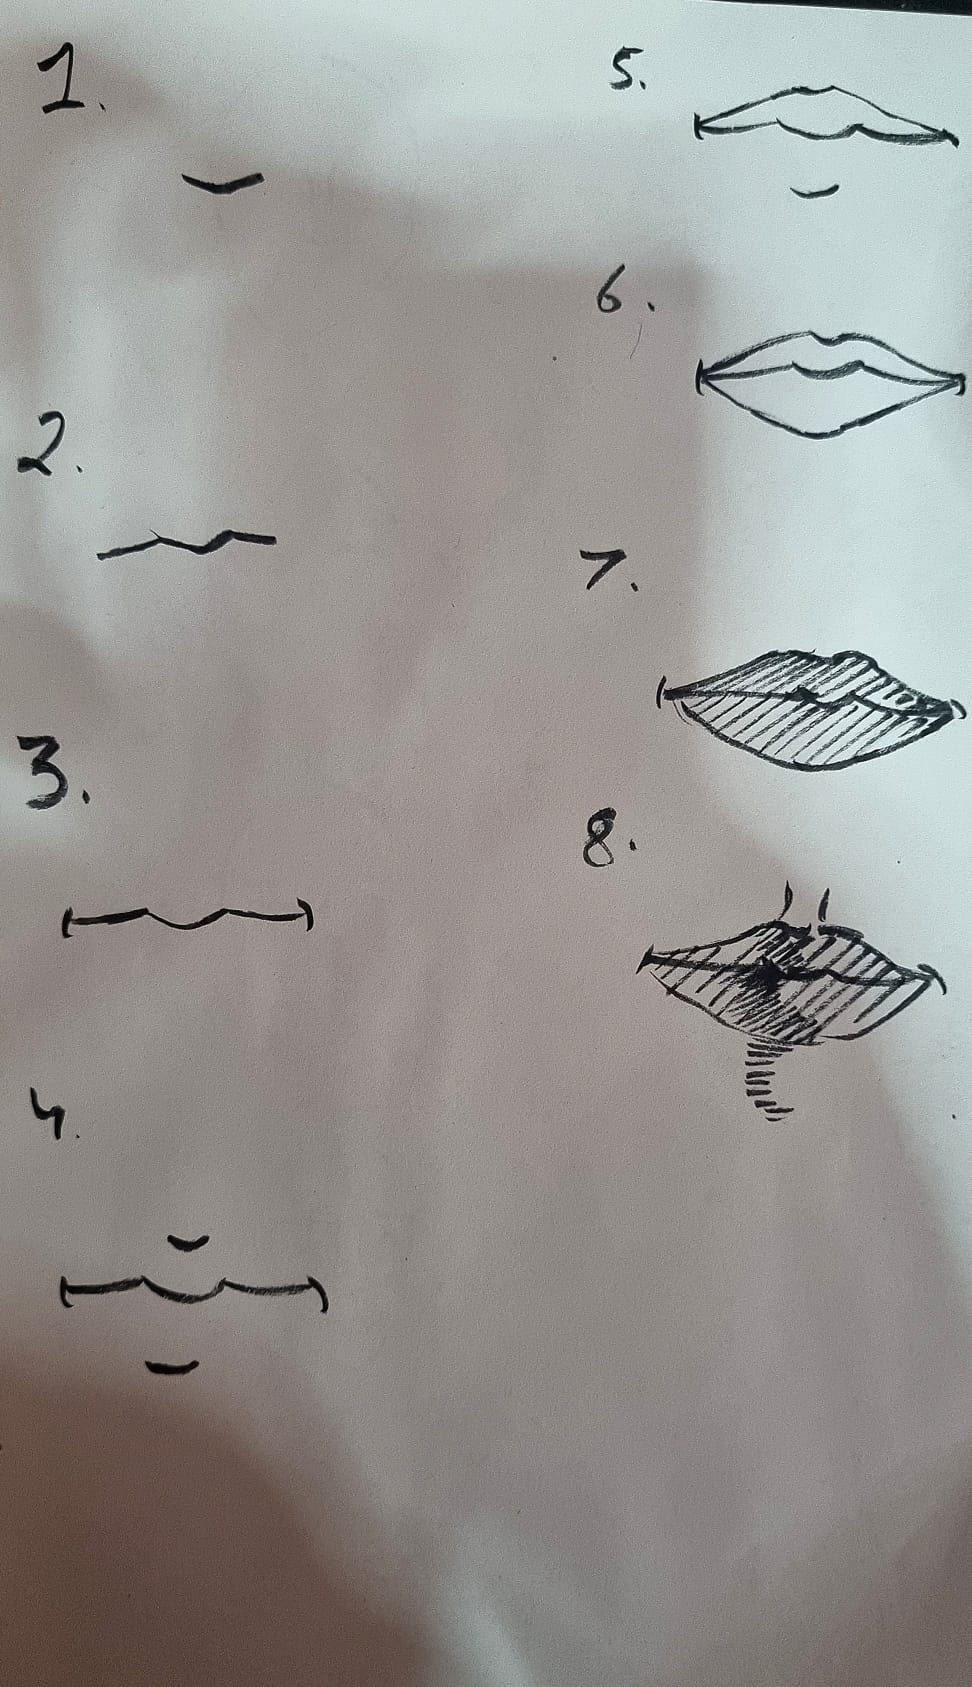 1.
2.
3.
4.
5.
6.
7.
8.